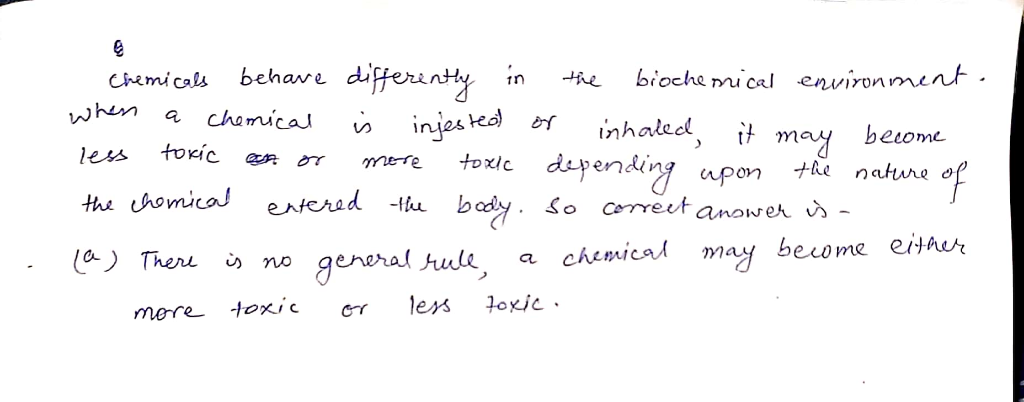 Chemicals behave differently in the biochemical environment.
When a chemical is injested or inhaled, it may become
less toxic or more toxic depending upon the nature of
the chemical entered the body. So correct answer is -
(a) There is no general rule, a chemical may become either
more toxic or less toxic.